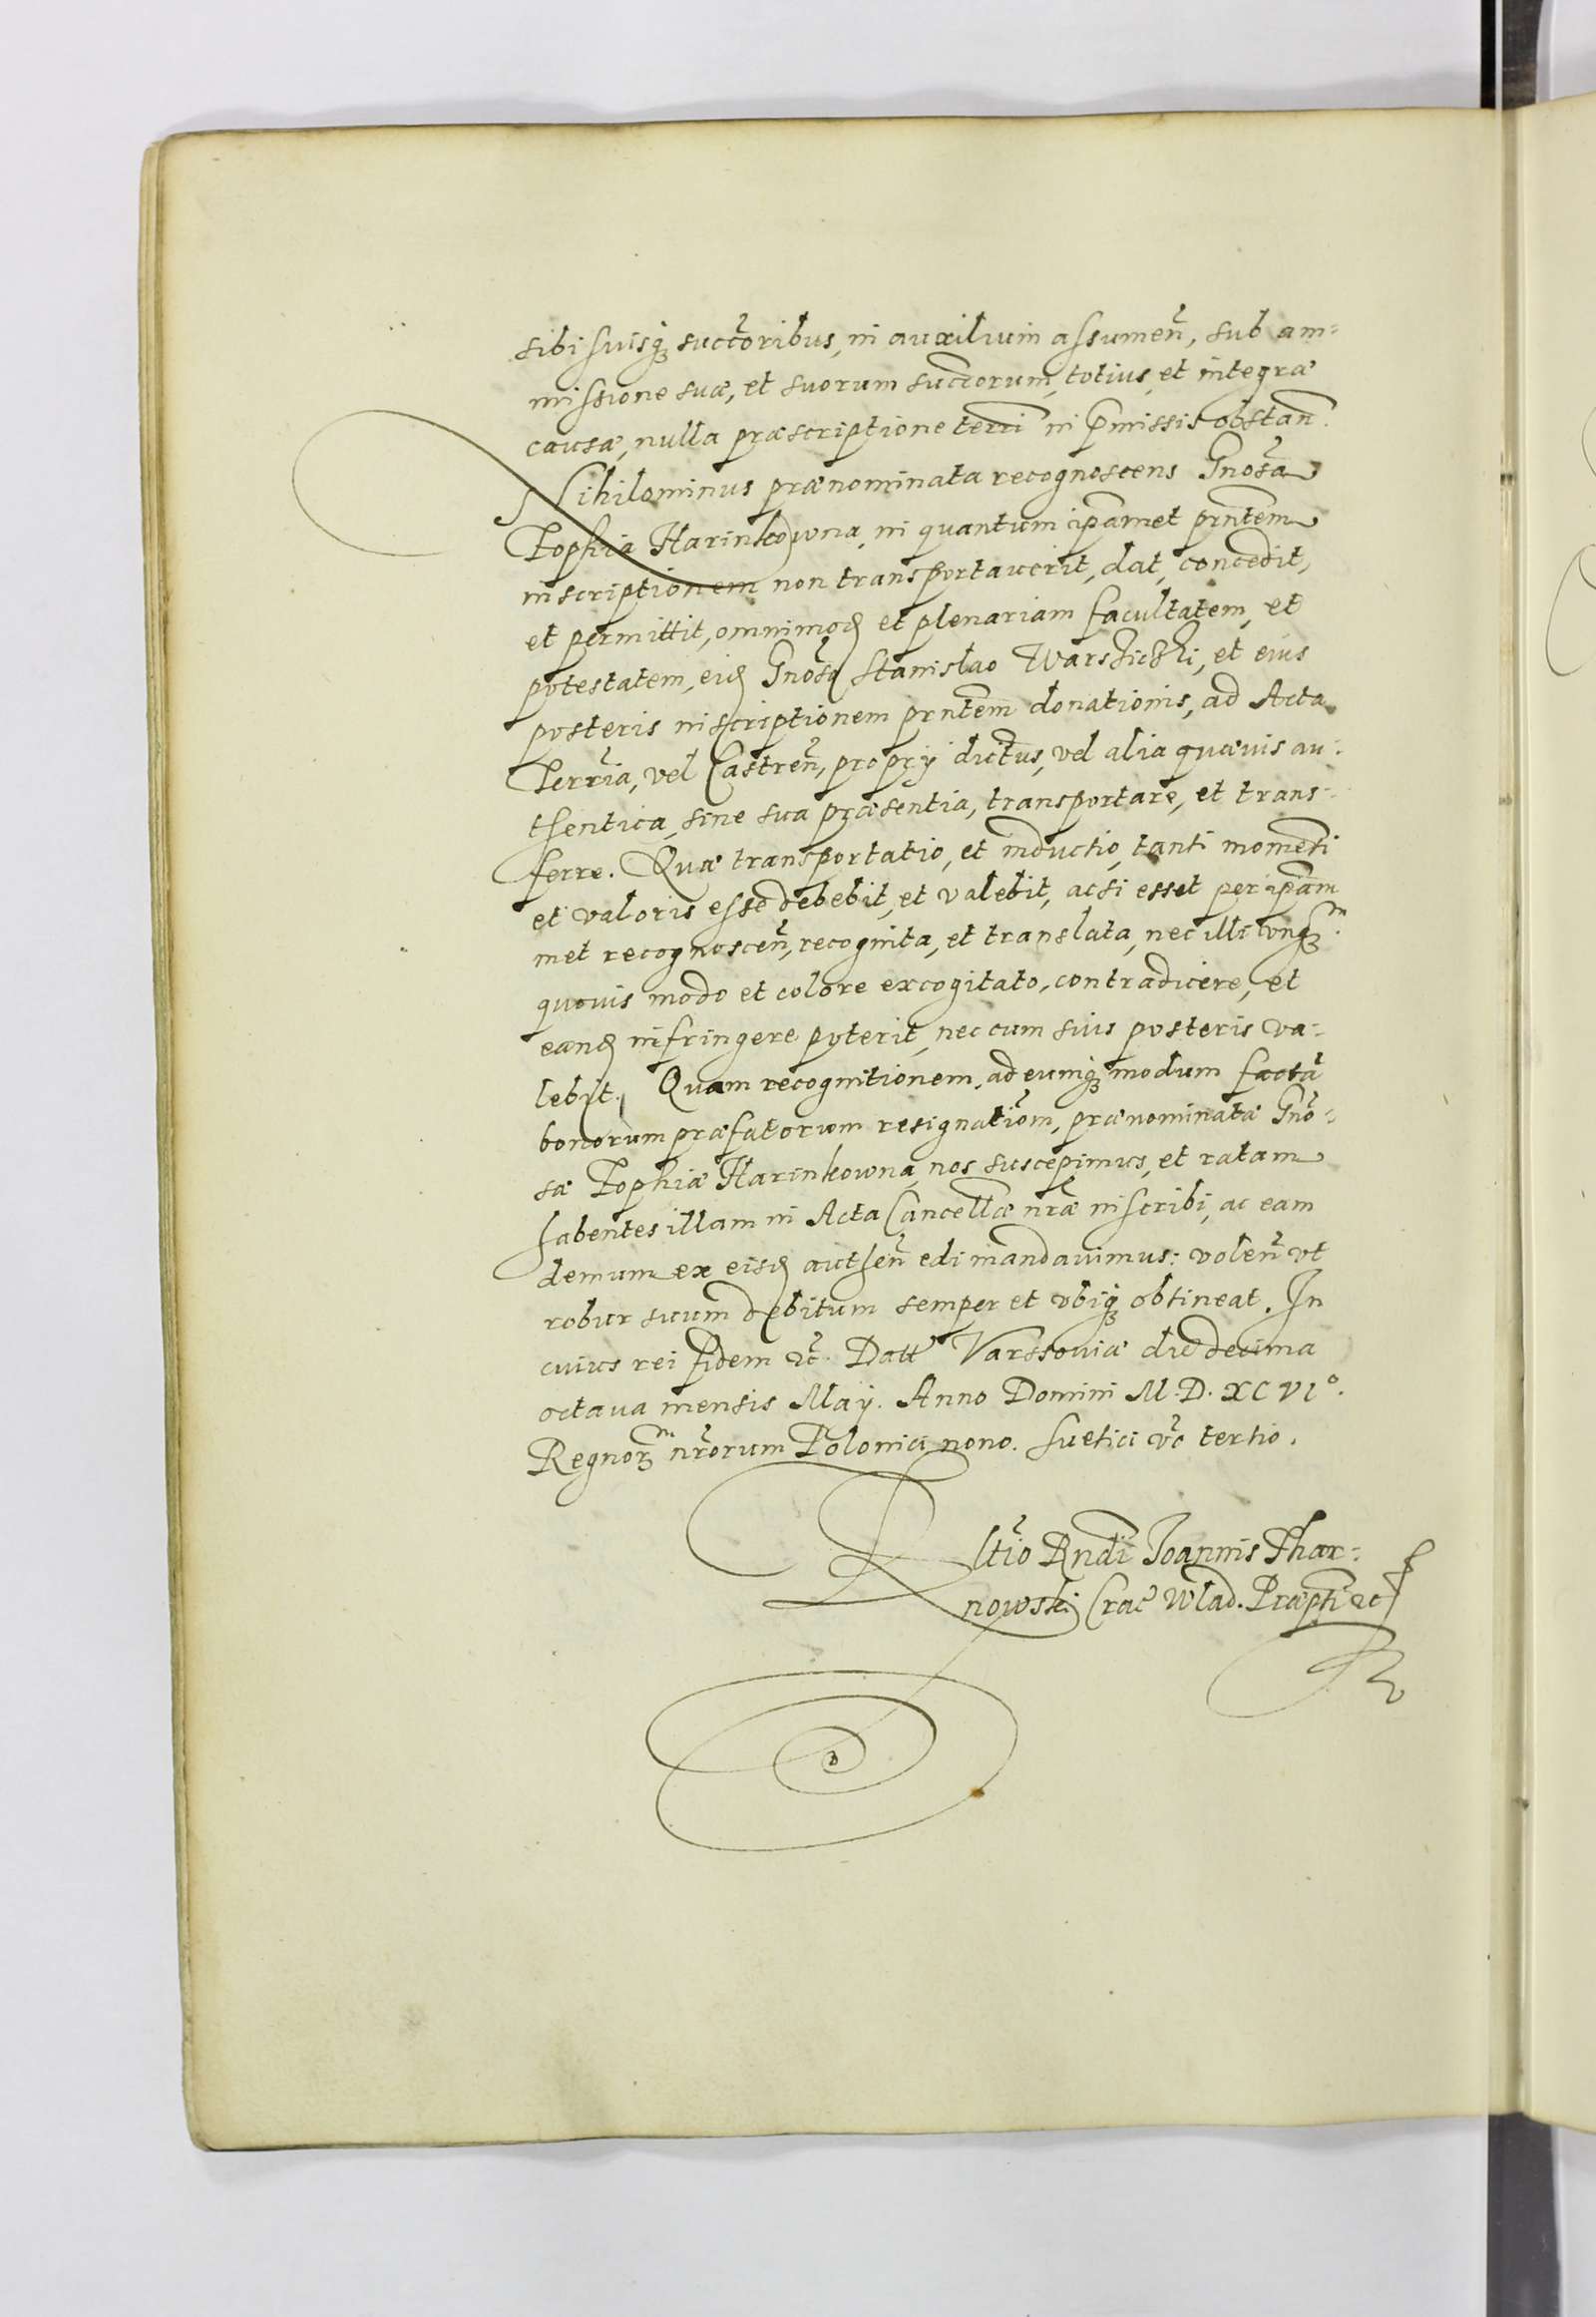 sibi suisq₃ succ̃oribus, in auxilium assumeñ, sub am=
missione suæ, et suorum succorum, totius, et integræ
causæ, nulla præscriptione terri in p̃missis obstañ.
Nihilominus prænominata recognoscens Gnosã
Zophia Harinkowna, in quantum ip̃amet pr̃ntem
inscriptionem non transportauerit, dat, concedit,
et permittit, omnimodꝫ et plenariam facultatem, et
potestatem, eidꝫ Gnõso Stanislao Warszicki, et eius
posteris inscriptionem prñtem donationis, ad Acta
Terrr̃ia, vel Castreñ, proprÿ dictus, vel alia quæuis au=
thentica, sine sua præsentia, transportare, et trans=
ferre. Quæ transportatio, et inductio, tanti momenti
et valoris esse debebit, et valebit, acsi esset per ip̃am
met recognosceñ, recognita, et translata, nec illi vnq₃ᵐ
quouis modo et colore excogitato, contradicere, et
eandꝫ infringere poterit, nec cum suis posteris va=
lebit. Quam recognitionem, ad eumq₃ modum factã
bonorum præfatorum resignatiõm, prænominatæ Gnõ=
sæ Zophiæ Harinkowna, nos suscepimus, et ratam
habentes illam in Acta Cancellæ nr̃æ inscribi, ac eam
demum ex eisdꝫ autheñ edi mandauimus: voleñ vt
robur suum debitum semper et vbiq₃ obtineat. In
cuius rei fidem &c̃. Datt Varssouiæ die decima
octaua mensis Maÿ. Anno Domini M.D.XCVI°.
Regnorᵐ nr̃orum Polonici nono. Suetici vo̊ tertio.
Rltĩo Rndi Joannis Thar=
nowski Crac̃ Wlad. Præpti &c